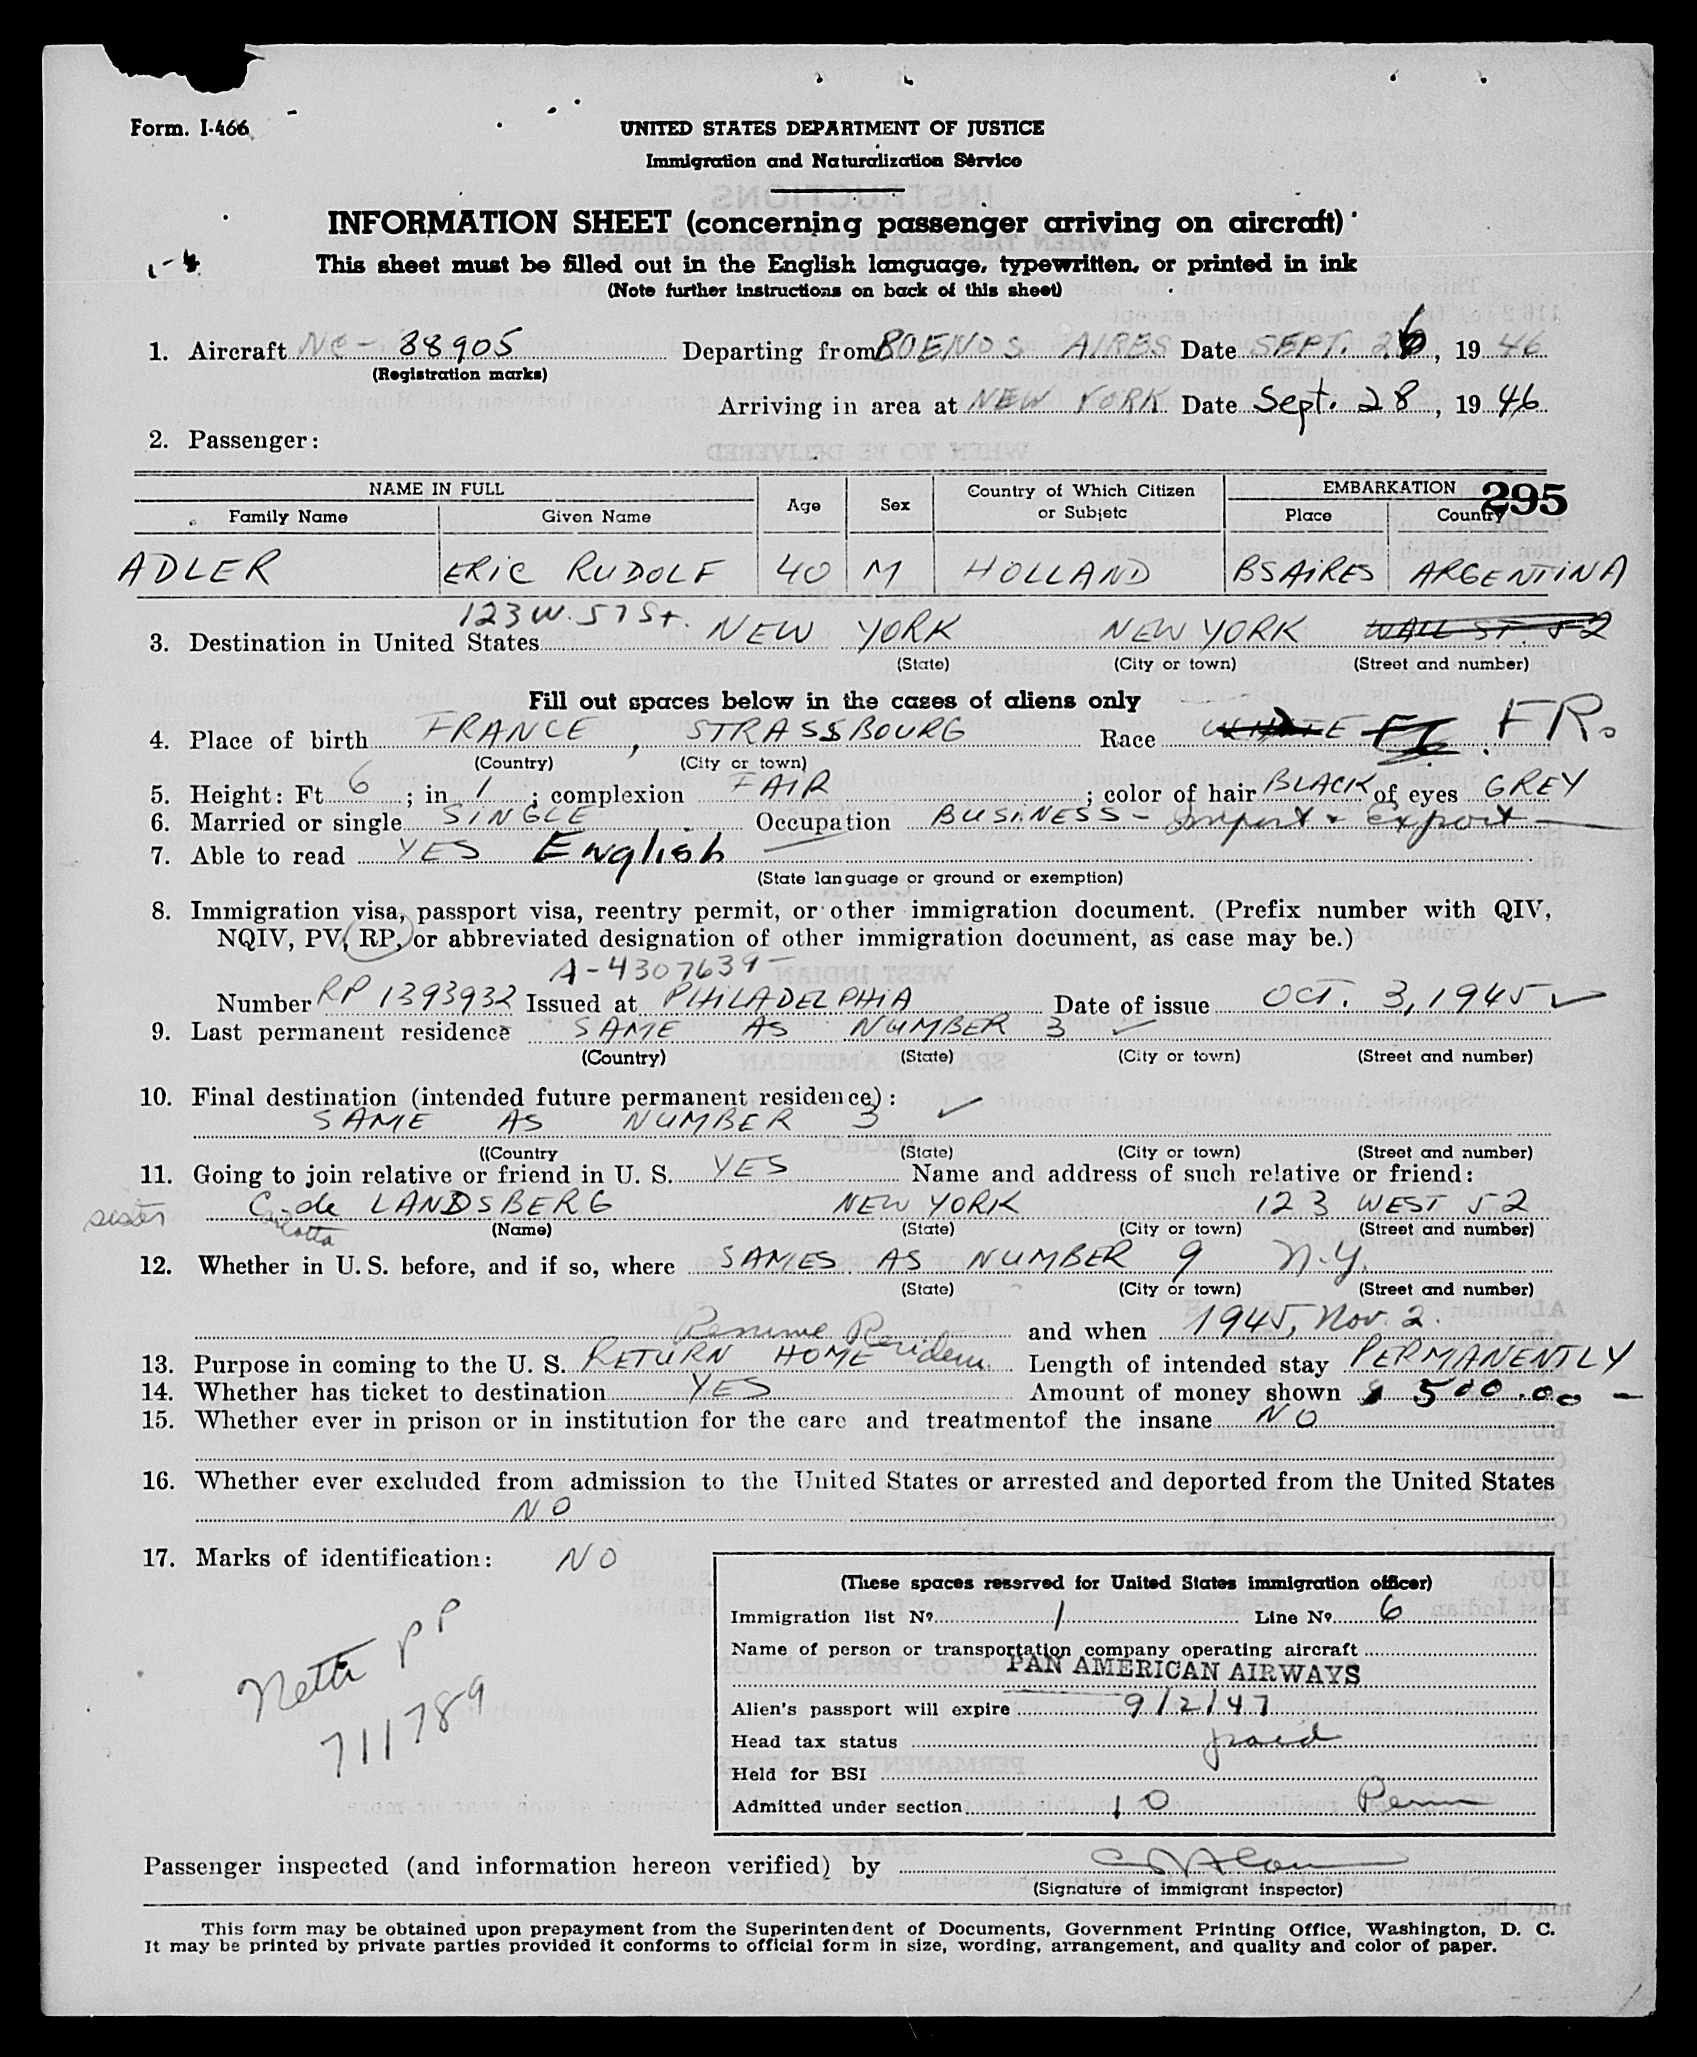 Form. I-466
UNITED STATES DEPARTMENT OF JUSTICE
Immigration and Naturalization Service
INFORMATION SHEET (concerning passenger arriving on aircraft)
This sheet must be filled out in the English language, typewritten, or printed in ink
(Note further instructions on back of this sheet)
1. Aircraft NC - 88905 Departing from BOENOS AIRES Date SEPT. 26, 1946
(Registration marks)
Arriving in area at NEW YORK Date Sept. 28, 1946
2. Passenger:
NAME IN FULL Age Sex Country of Which Citizen or Subjetc EMBARKATION 295
Family Name Given Name Place Country
ADLER ERIC RUDOLF 40 M HOLLAND BSAIRES ARGENTINA
123 W. 57 St.
3. Destination in United States NEW YORK NEW YORK WALL ST. 52
(State) (City or town) (Street and number)
Fill out spaces below in the cases of aliens only
4. Place of birth FRANCE, STRASSBOURG Race WHITE FR.
(Country) (City or town)
5. Height: Ft 6; in 1; complexion FAIR; color of hair BLACK of eyes GREY
6. Married or single SINGLE Occupation BUSINESS - Import & Export
7. Able to read YES English
(State language or ground or exemption)
8. Immigration visa, passport visa, reentry permit, or other immigration document. (Prefix number with QIV,
NQIV, PV, RP, or abbreviated designation of other immigration document, as case may be.)
A-4307639
Number RP 1393932 Issued at PHILADELPHIA Date of issue OCT. 3, 1945
9. Last permanent residence SAME AS NUMBER 3
(Country) (State) (City or town) (Street and number)
10. Final destination (intended future permanent residence):
SAME AS NUMBER 3
((Country (State) (City or town) (Street and number)
11. Going to join relative or friend in U. S. YES Name and address of such relative or friend:
sister C. de LANDSBERG NEW YORK 123 WEST 52
(Name) (State) (City or town) (Street and number)
12. Whether in U. S. before, and if so, where SAMES AS NUMBER 9 N.Y.
(State) (City or town) (Street and number)
and when 1945, Nov. 2.
13. Purpose in coming to the U. S. RETURN HOME Length of intended stay PERMANENTLY
14. Whether has ticket to destination YES Amount of money shown $ 500.00 -
15. Whether ever in prison or in institution for the care and treatmentof the insane NO
16. Whether ever excluded from admission to the United States or arrested and deported from the United States
NO
17. Marks of identification: NO
Neth PP
711789
(These spaces reserved for United States immigration officer)
Immigration list Nº 1 Line Nº 6
Name of person or transportation company operating aircraft
PAN AMERICAN AIRWAYS
Alien's passport will expire 9/2/47
Head tax status paid
Held for BSI
Admitted under section 10 Perm
Passenger inspected (and information hereon verified) by
(Signature of immigrant inspector)
This form may be obtained upon prepayment from the Superintendent of Documents, Government Printing Office, Washington, D. C.
It may be printed by private parties provided it conforms to official form in size, wording, arrangement, and quality and color of paper.